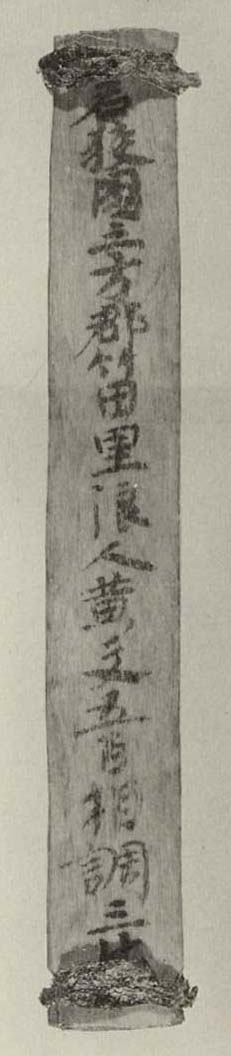 若狹國三方郡竹田里浪人黄文五百相調三斗